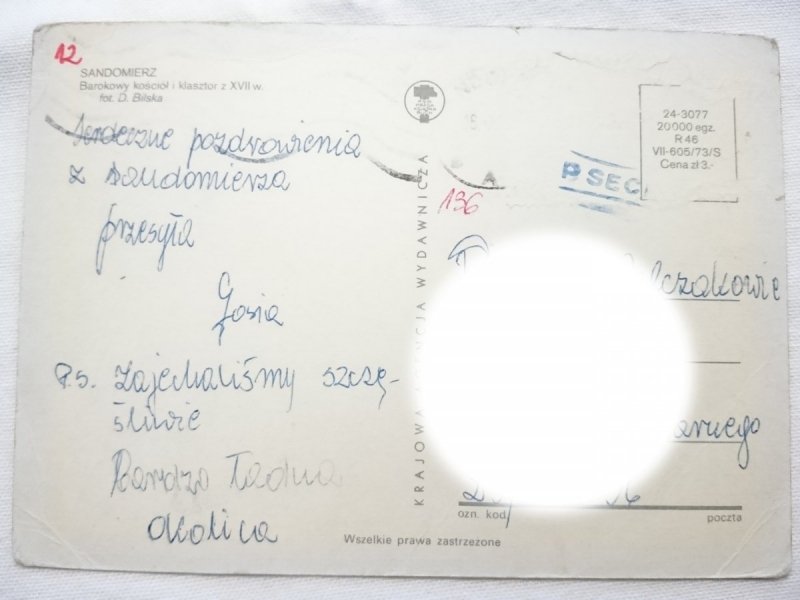 12
SANDOMIERZ
Barokowy kościół i klasztor z XVII w.
fot. D. Bilska
Serdeczne pozdrowienia
z Sandomierza
przesyła
Gosia
P.S. Zajechaliśmy szczę-
śliwie
Bardzo ładna
okolica
KRAJOWA AGENCJA WYDAWNICZA
24-3077
20000 egz.
R 46
VII-605/73/S
Cena zł 3.-
P SEC
136
ozn. kod
poczta
Wszelkie prawa zastrzeżone